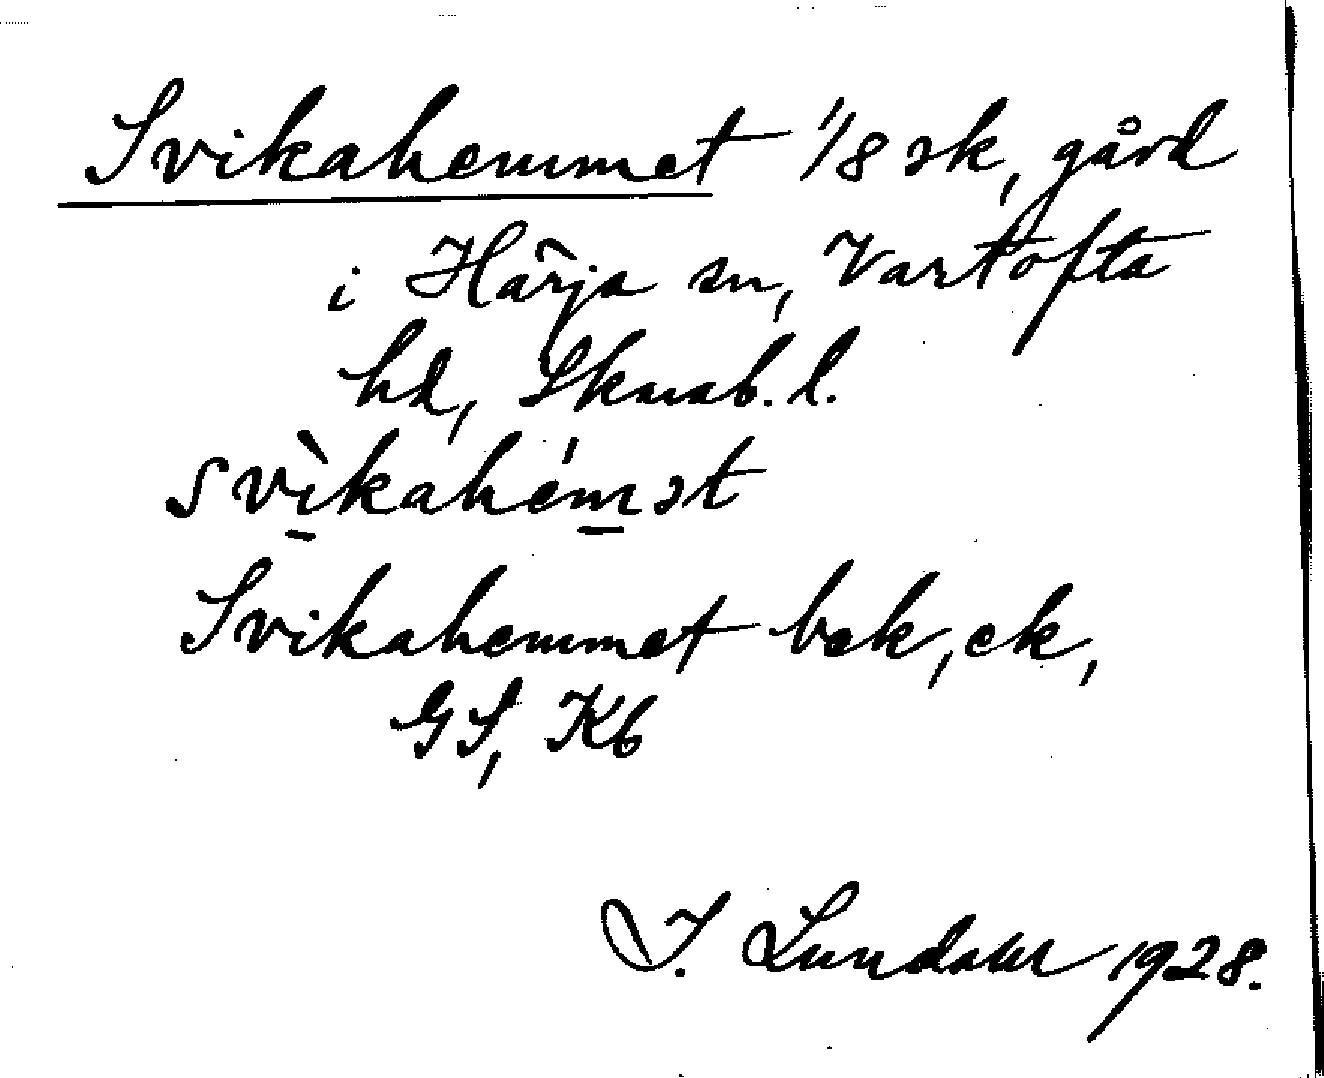 Svikahemmet 1/8 sk, gård
i Härja sn, Vartofta
hd, Skarab. l.
svìkahémət
Svikahemmet bek, ek,
GS, Kb
I. Lundahl 1928.